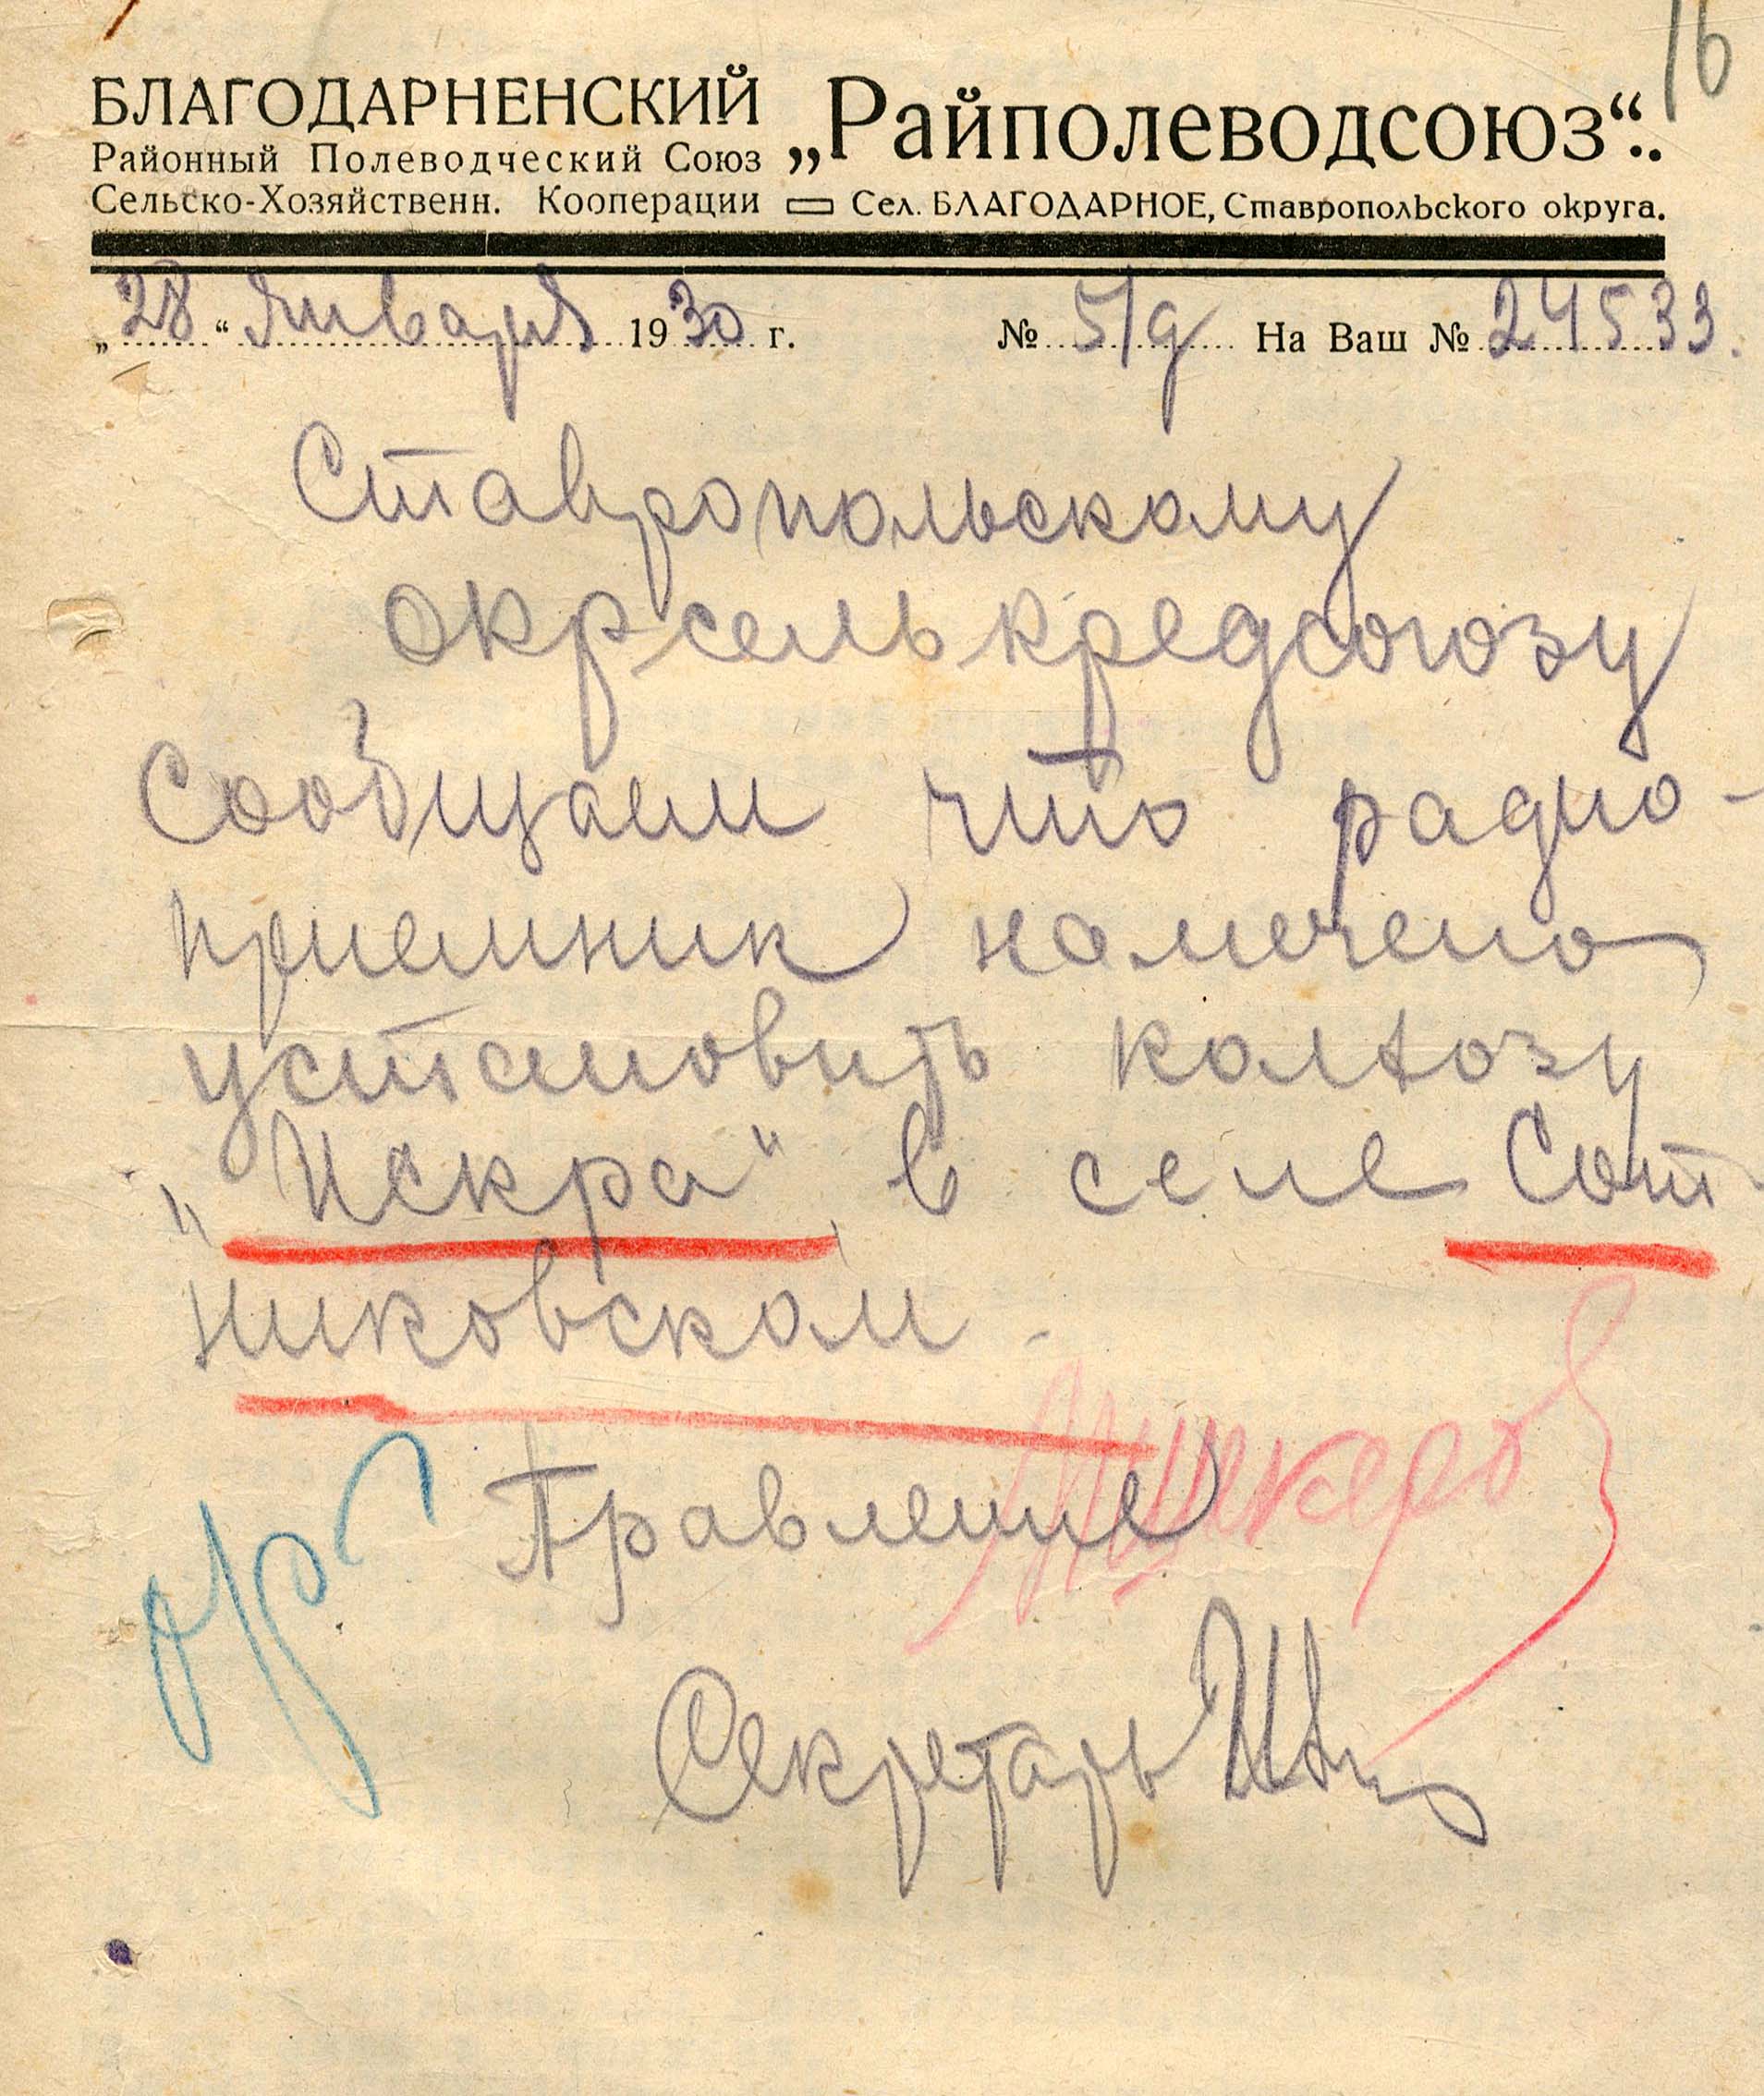 16
БЛАГОДАРНЕНСКИЙ
Районный Полеводческий Союз
Сельско-Хозяйственн. Кооперации
„Райполеводсоюз“.
Сел. БЛАГОДАРНОЕ, Ставропольского округа.
„28“ Января 1930 г. № 5/д На Ваш № 24533.
Ставропольскому
окрселькредсоюзу
Сообщаем что радио-
приемник намечено
установить колхозу
„Искра“ в селе Сот-
никовском.
Правление
Секретарь